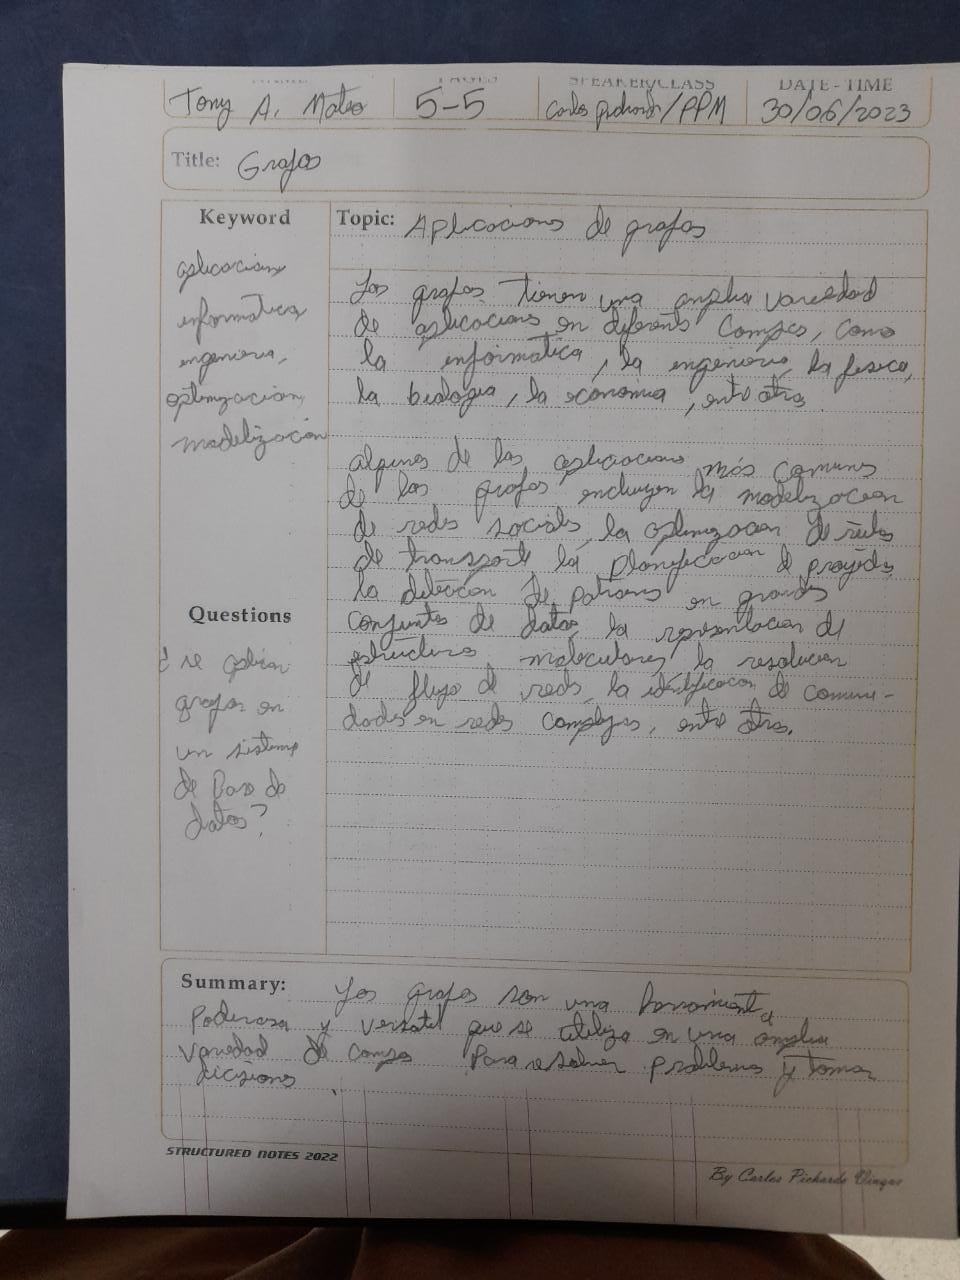 PAGES
SPEAKER/CLASS
DATE - TIME
Tony A. Mateo
5-5
Carlos Pichardo / PPM
30/06/2023
Title: Grafos
Keyword
aplicaciones
informatica
ingenieria,
optimizacion,
modelización
Questions
¿ se aplican
grafos en
un sistema
de base de
datos?
Topic: Aplicaciones de grafos
Los grafos tienen una amplia variedad
de aplicaciones en diferentes campos, como
la informática, la ingenieria, la fisica,
la biologia, la economia, entre otros.
algunas de las aplicaciones más comunes
de los grafos incluyen la modelizacion
de redes sociales, la optimizacion de rutas
de transporte, la planificacion de proyectos,
la deteccion de patrones en grandes
conjuntos de datos, la representacion de
estructuras moleculares, la resolucion
de flujo de redes, la identificacion de comuni-
dades en redes complejas, entre otros.
Summary: Los grafos son una herramienta
poderosa y versatil que se utiliza en una amplia
variedad de campos para resolver problemas y tomar
decisiones.
STRUCTURED NOTES 2022
By Carlos Pichardo Vinque